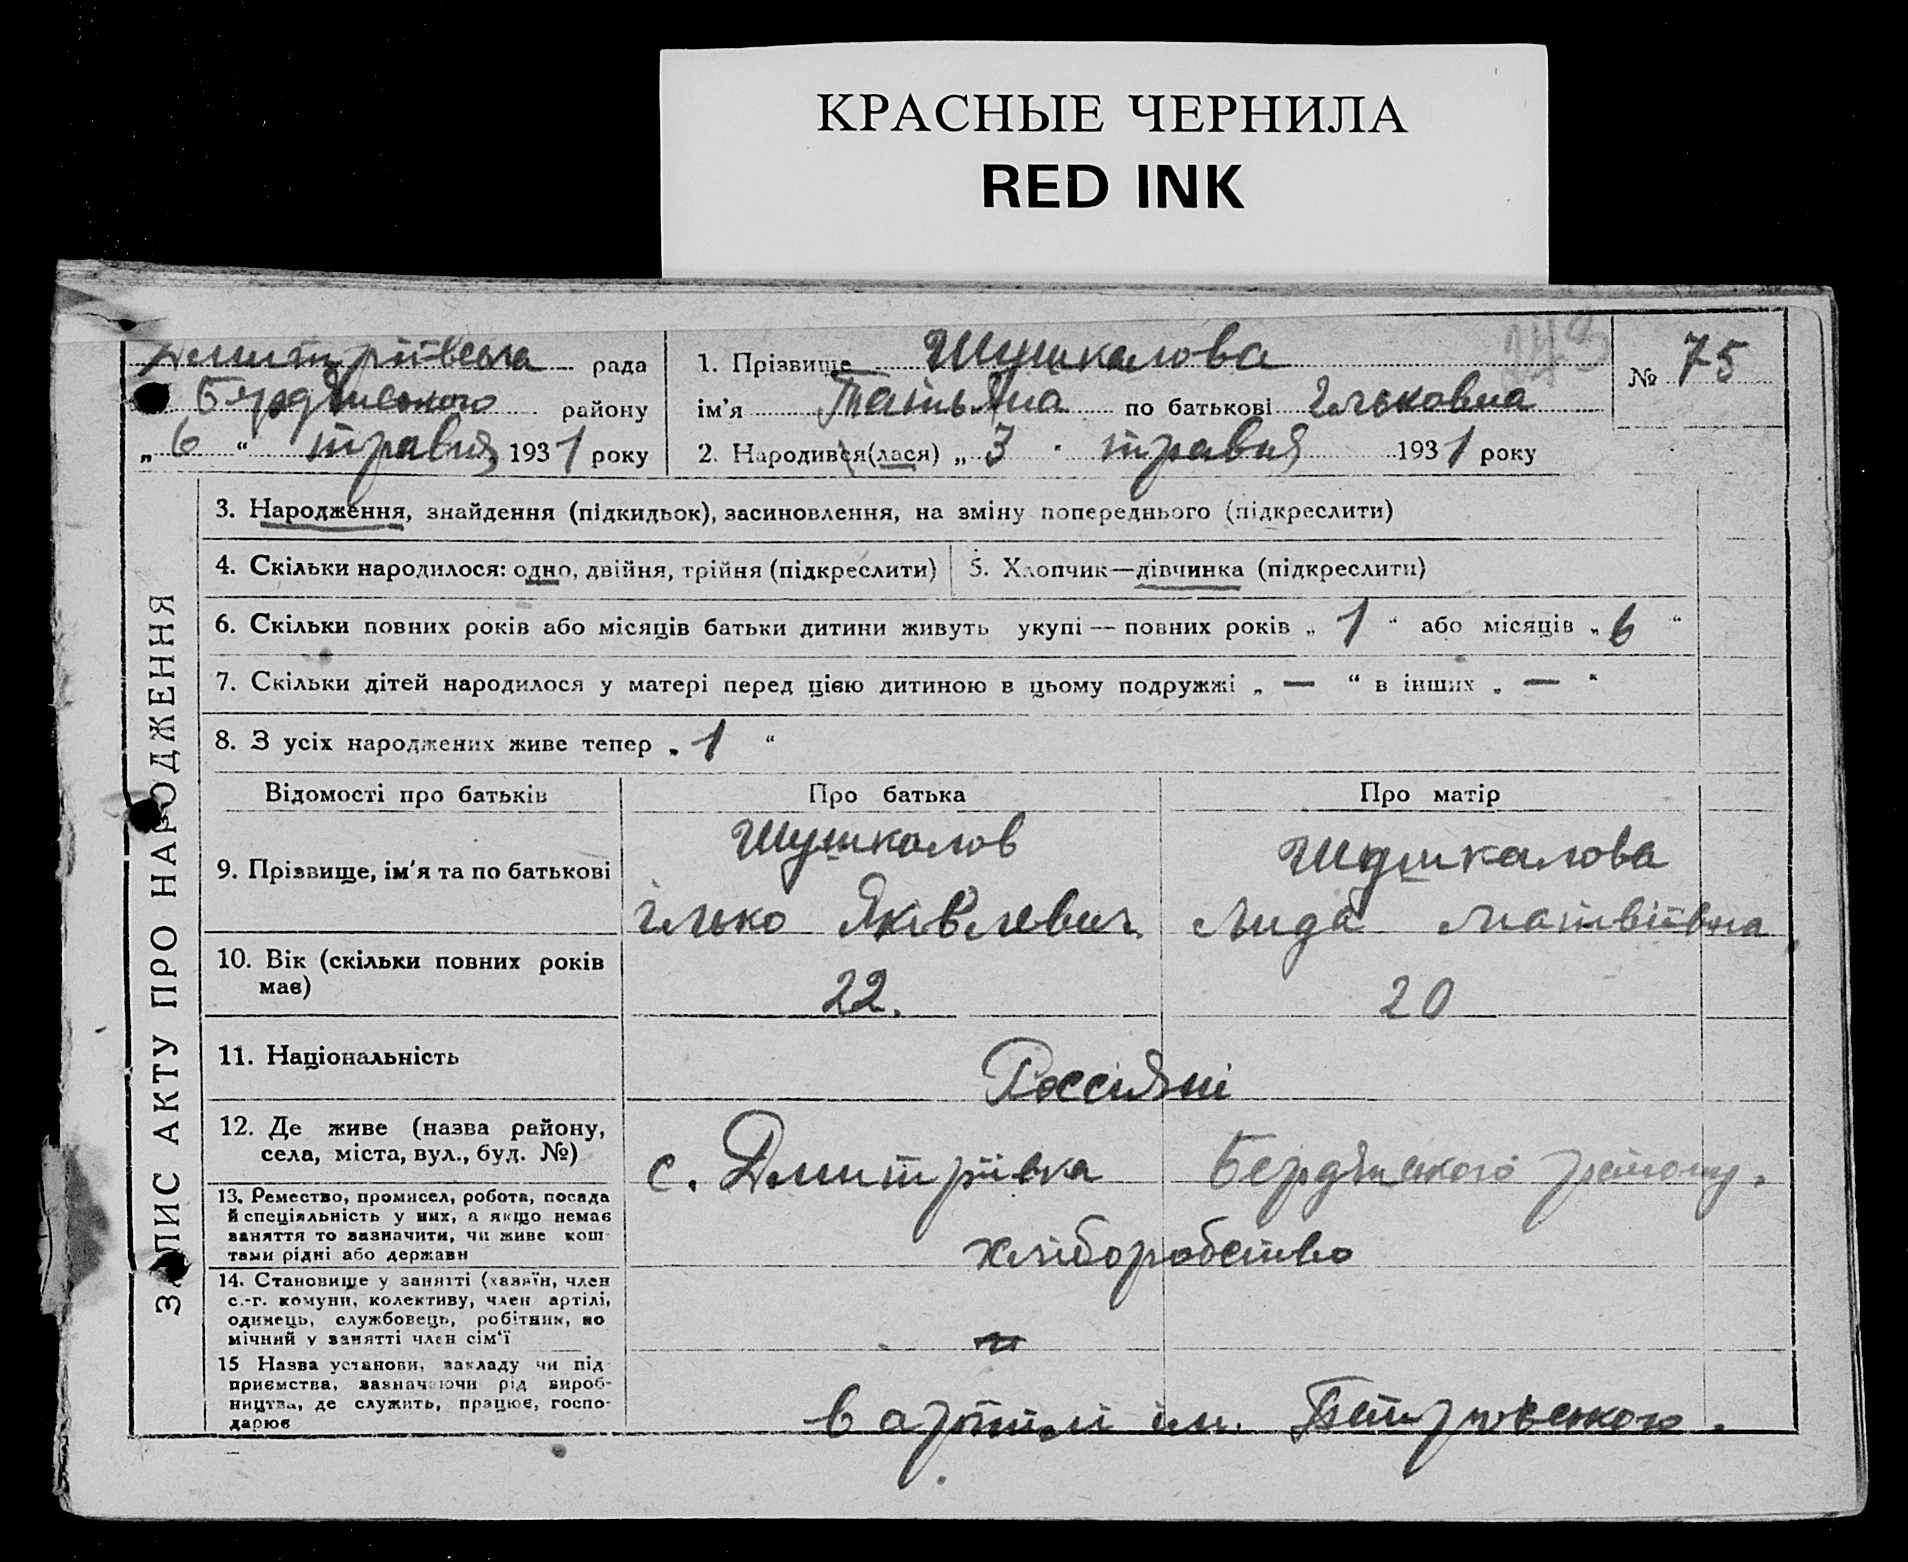 КРАСНЫЕ ЧЕРНИЛА
RED INK
Дмитріївська рада
Бердянського району
„ 6 “ травня 1931 року
1. Прізвище Шушкалова
ім’я Татьяна по батькові Ільковна
2. Народився(лася) „ 3 травня 1931 року
№ 75
ЗАПИС АКТУ ПРО НАРОДЖЕННЯ
3. Народження, знайдення (підкидьок), засиновлення, на зміну попереднього (підкреслити)
4. Скільки народилося: одно, двійня, трійня (підкреслити)
5. Хлопчик—дівчинка (підкреслити)
6. Скільки повних років або місяців батьки дитини живуть укупі — повних років „ 1 “ або місяців „ 6 “
7. Скільки дітей народилося у матері перед цією дитиною в цьому подружжі „ — “ в інших „ — “
8. З усіх народжених живе тепер „ 1 “
Відомості про батьків
Про батька
Про матір
9. Прізвище, ім’я та по батькові
Шушкалов
Ілько Яківлевич
Шушкалова
Лида Матвіївна
10. Вік (скільки повних років
має)
22.
20
11. Національність
Россіяні
12. Де живе (назва району,
села, міста, вул., буд. №)
с. Дмитрівка Бердянського району.
13. Ремество, промисел, робота, посада
й спеціяльність у них, а якщо немає
заняття то зазначити, чи живе кош-
тами рідні або держави
хліборобство
14. Становище у занятті (хазяїн, член
с.-г. комуни, колективу, член артілі,
одинець, службовець, робітник, по
мічний у занятті член сім‘ї
15 Назва установи, закладу чи під-
приємства, зазначаючи рід вироб-
ництва, де служить, працює, госпо-
дарює
в артілі ім. Петровського.